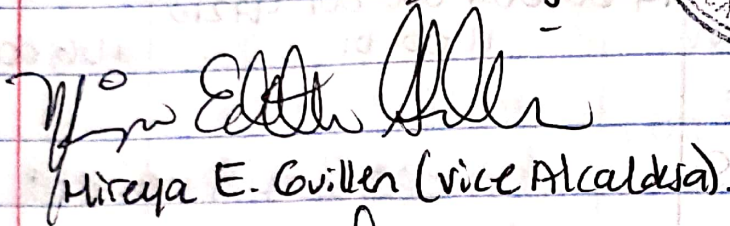 Mireya Edith Guillen
Mireya E. Guillen (vice Alcaldesa).